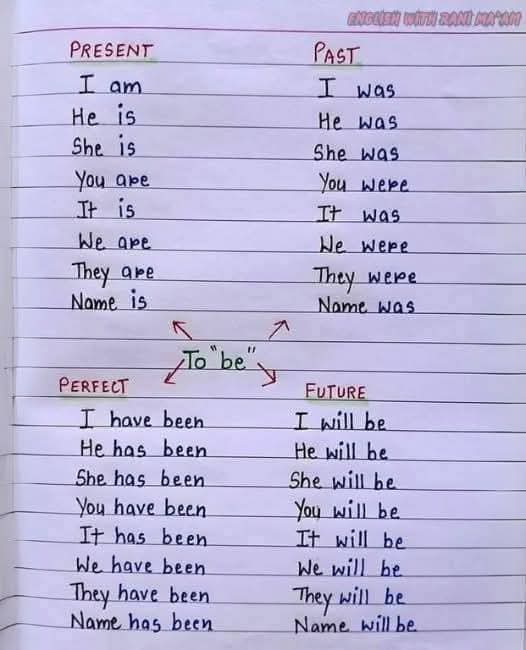 ENGLISH WITH RANI MA'AM
PRESENT
I am
He is
She is
You are
It is
We are
They are
Name is
PAST
I was
He was
She was
You were
It was
We were
They were
Name was
To "be"
PERFECT
I have been
He has been
She has been
You have been
It has been
We have been
They have been
Name has been
FUTURE
I will be
He will be
She will be
You will be
It will be
We will be
They will be
Name will be